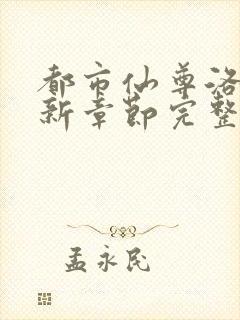 都市仙尊洛
新章节完整
孟永民